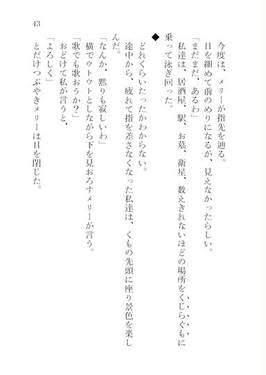 43
今度は、メリーが指先を辿る。
目を細めて前のめりになるが、見えなかったらしい。
「まだまだ、あるわ」
私達は、居酒屋、駅、お墓、衛星、数えきれないほどの場所をくじらぐもに
乗って泳ぎ回った。
◆
どれくらいたったかわからない。
途中から、疲れて指を差さなくなった私達は、くもの先頭に座り景色を楽し
んだ。
「なんか、黙りも寂しいわ」
横でウトウトとしながら下を見おろすメリーが言う。
「歌でも歌おうか？」
おどけて私が言うと、
「よろしく」
とだけつぶやきメリーは目を閉じた。